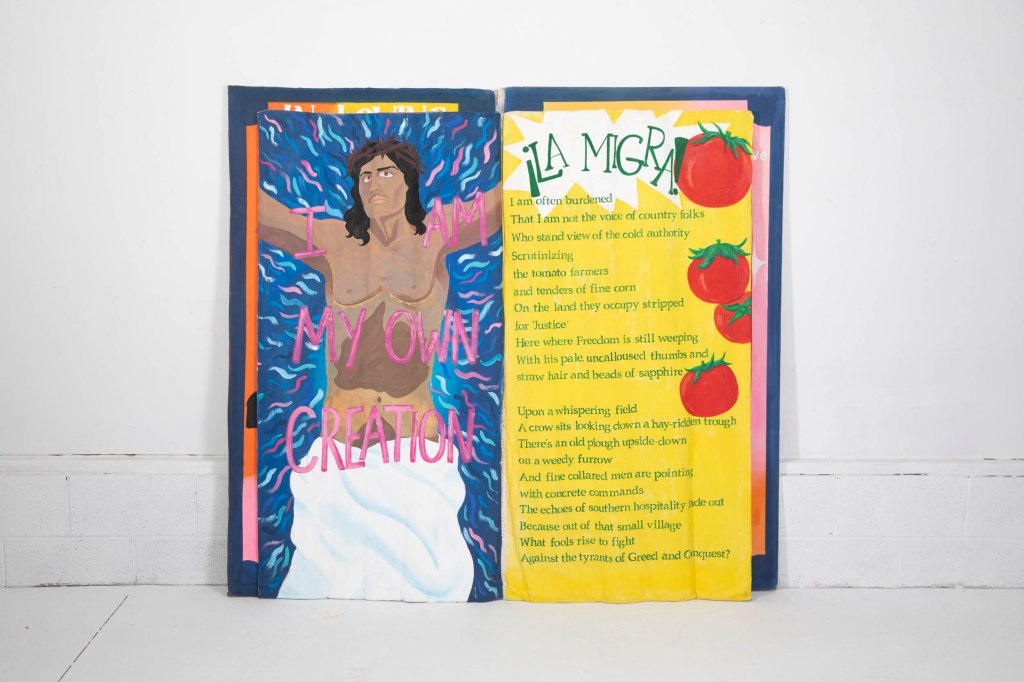 IN LOVING
I AM
MY OWN
CREATION
¡LA MIGRA!
I am often burdened
That I am not the voice of country folks
Who stand view of the cold authority
Scrutinizing
the tomato farmers
and tenders of fine corn
On the land they occupy stripped
for 'Justice'
Here where Freedom is still weeping
With his pale, uncalloused thumbs and
straw hair and beads of sapphire
Upon a whispering field
A crow sits looking down a hay-ridden trough
There's an old plough upside-down
on a weedy furrow
And fine collared men are pointing
with concrete commands
The echoes of southern hospitality jade out
Because out of that small village
What fools rise to fight
Against the tyrants of Greed and Onquest?